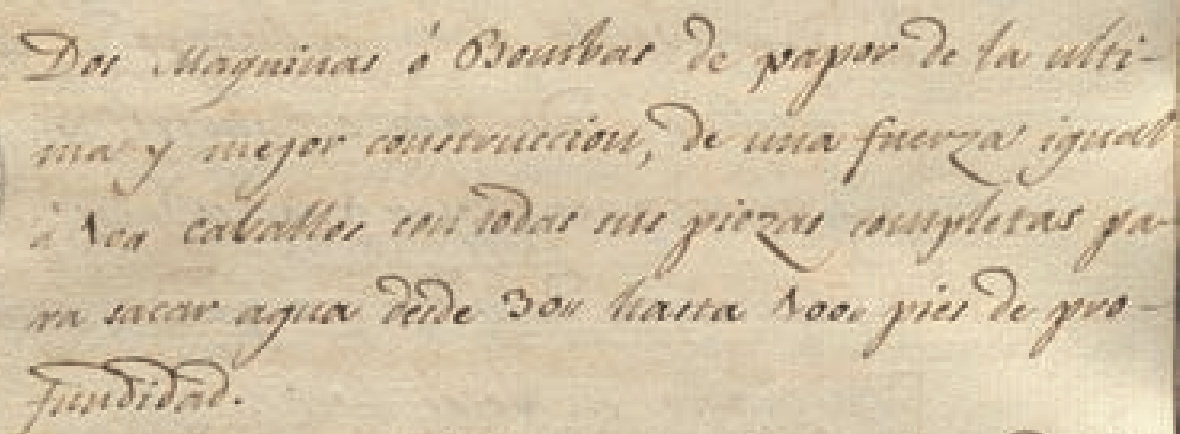 Dos Maquinas ó Bombas de papor de la ulti-
ma y mejor construccion, de una fuerza igual
à 100 caballos con todas sus piezas completas pa-
ra sacar agua desde 300 hasta 1000 pies de pro-
fundidad.